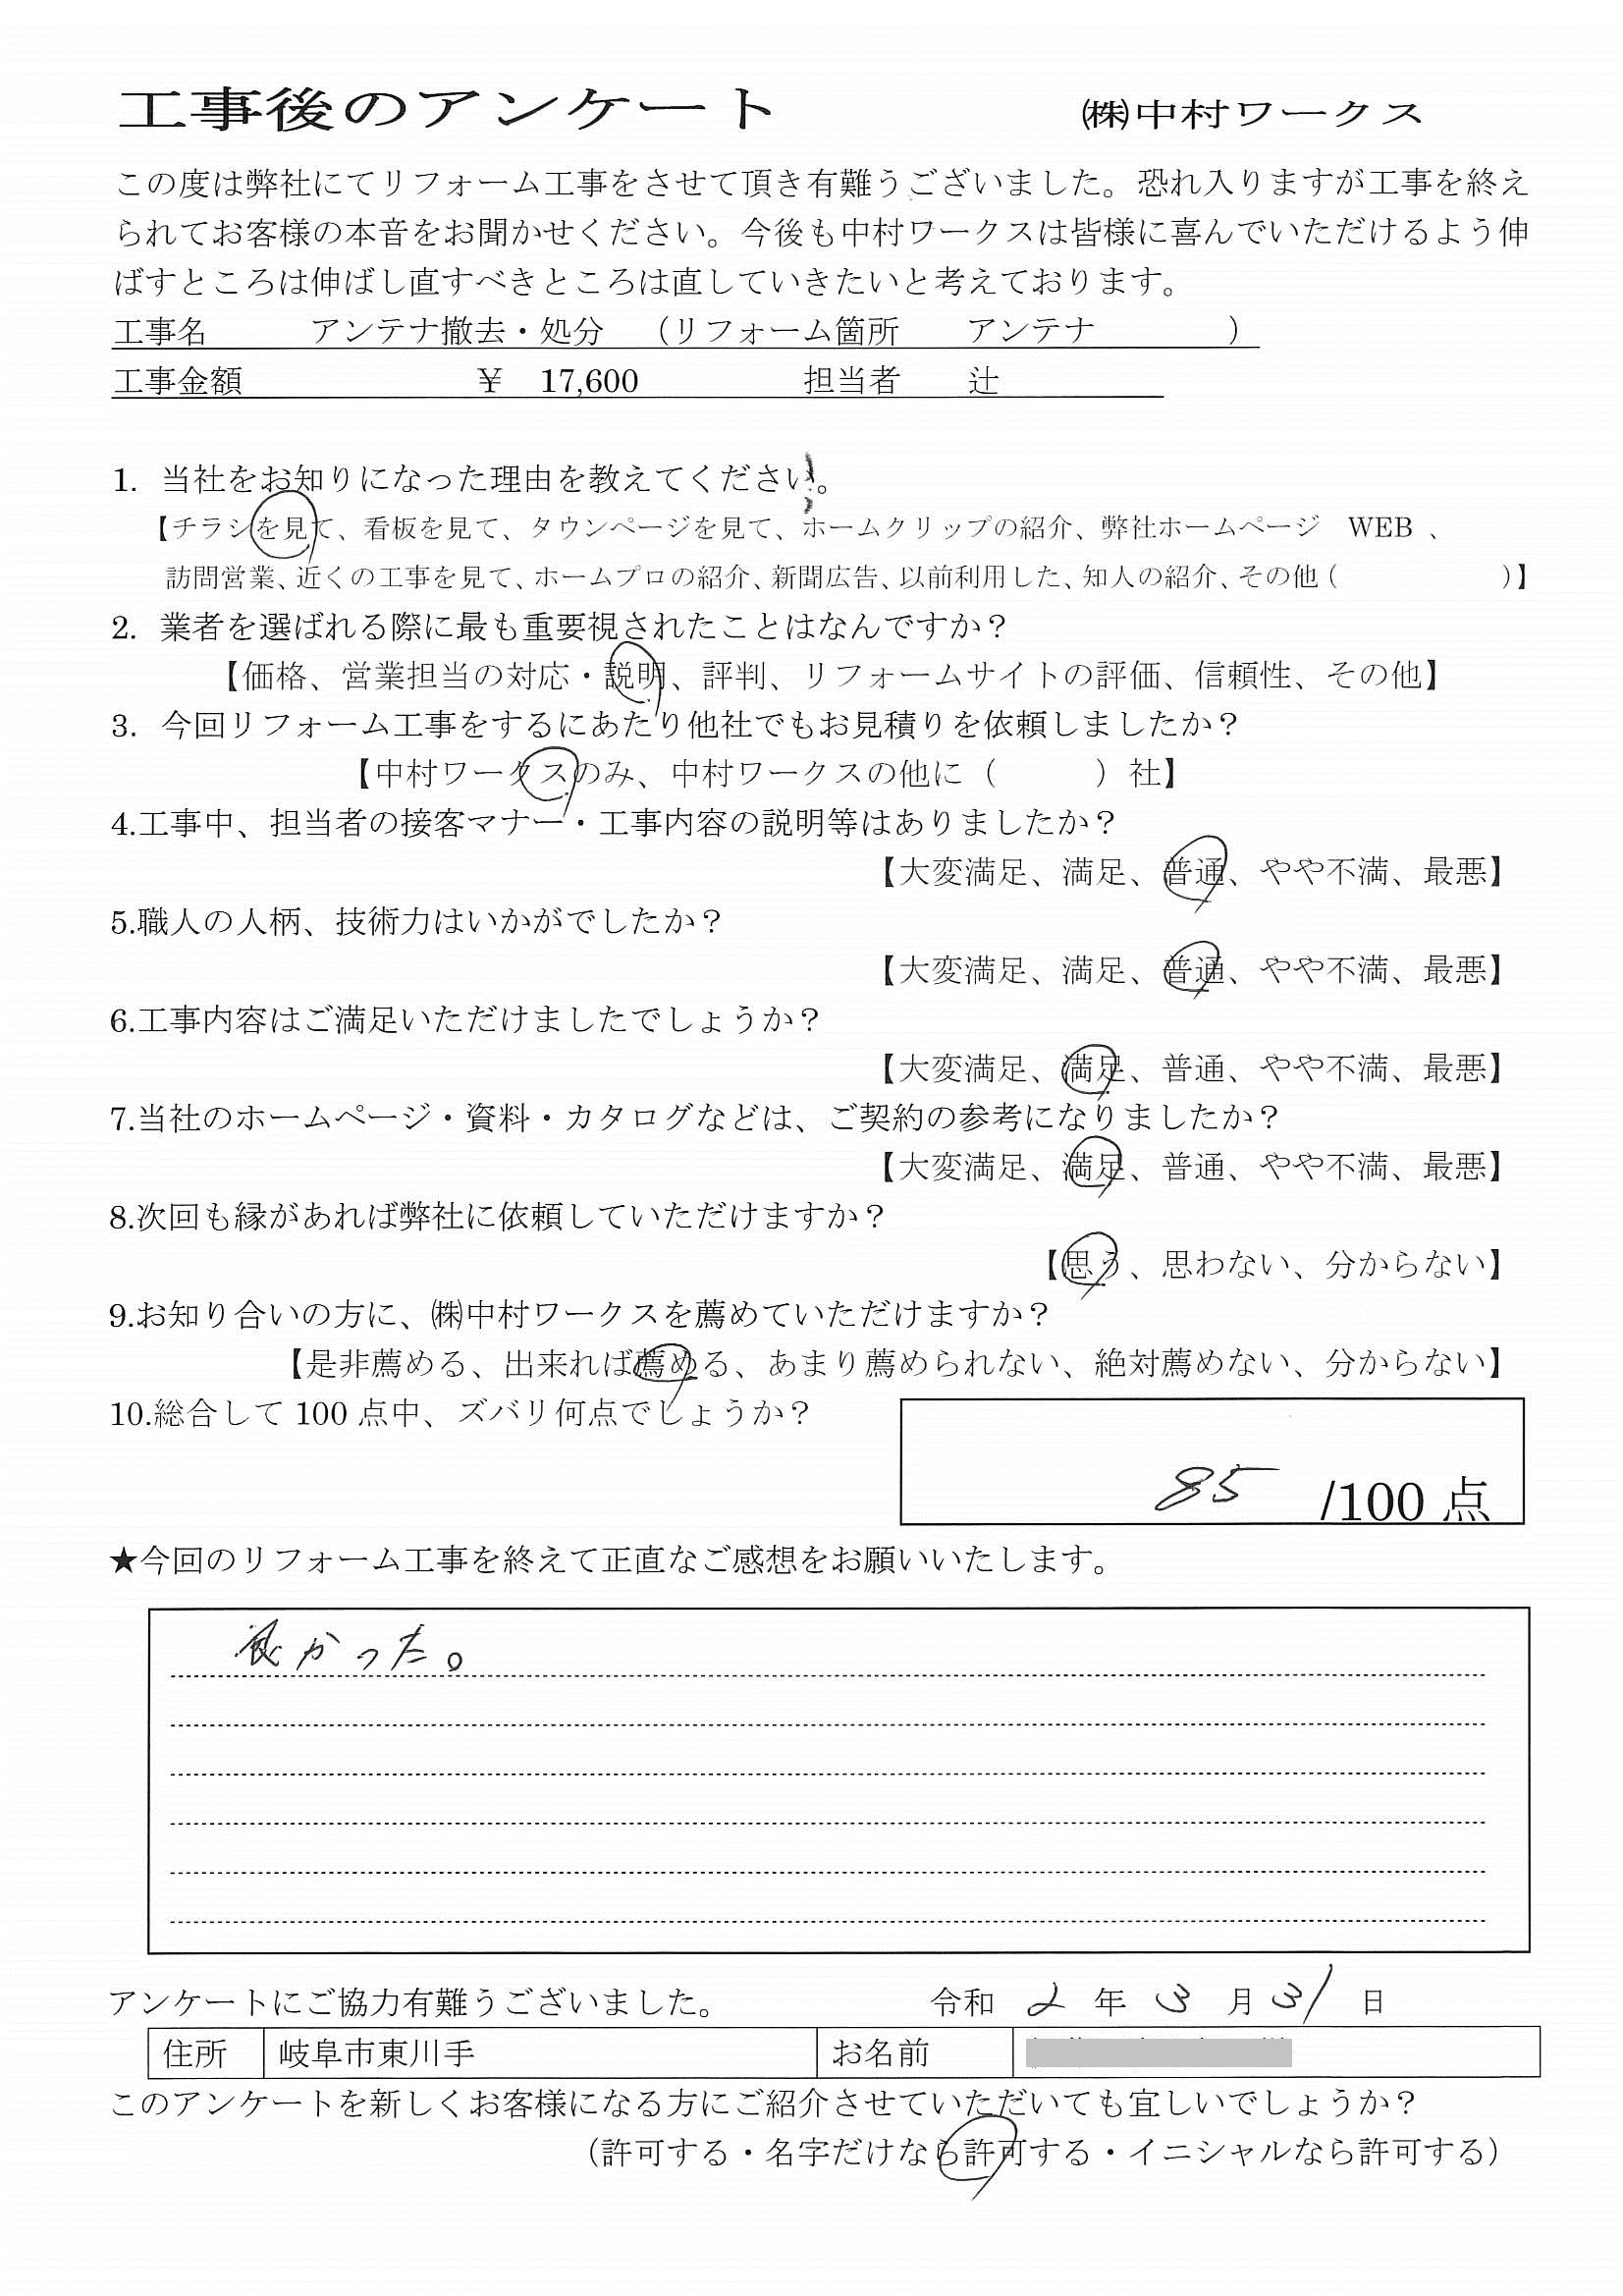 工事後のアンケート ㈱中村ワークス
この度は弊社にてリフォーム工事をさせて頂き有難うございました。恐れ入りますが工事を終え
られてお客様の本音をお聞かせください。今後も中村ワークスは皆様に喜んでいただけるよう伸
ばすところは伸ばし直すべきところは直していきたいと考えております。
工事名 アンテナ撤去・処分 （リフォーム箇所 アンテナ ）
工事金額 ￥ 17,600 担当者 辻
1. 当社をお知りになった理由を教えてください。
【チラシを見て、看板を見て、タウンページを見て、ホームクリップの紹介、弊社ホームページ WEB 、
訪問営業、近くの工事を見て、ホームプロの紹介、新聞広告、以前利用した、知人の紹介、その他（ ）】
2. 業者を選ばれる際に最も重要視されたことはなんですか？
【価格、営業担当の対応・説明、評判、リフォームサイトの評価、信頼性、その他】
3. 今回リフォーム工事をするにあたり他社でもお見積りを依頼しましたか？
【中村ワークスのみ、中村ワークスの他に（ ）社】
4.工事中、担当者の接客マナー・工事内容の説明等はありましたか？
【大変満足、満足、普通、やや不満、最悪】
5.職人の人柄、技術力はいかがでしたか？
【大変満足、満足、普通、やや不満、最悪】
6.工事内容はご満足いただけましたでしょうか？
【大変満足、満足、普通、やや不満、最悪】
7.当社のホームページ・資料・カタログなどは、ご契約の参考になりましたか？
【大変満足、満足、普通、やや不満、最悪】
8.次回も縁があれば弊社に依頼していただけますか？
【思う、思わない、分からない】
9.お知り合いの方に、㈱中村ワークスを薦めていただけますか？
【是非薦める、出来れば薦める、あまり薦められない、絶対薦めない、分からない】
10.総合して 100 点中、ズバリ何点でしょうか？
85 /100 点
★今回のリフォーム工事を終えて正直なご感想をお願いいたします。
良かった。
アンケートにご協力有難うございました。 令和 2 年 3 月 31 日
住所 岐阜市東川手 お名前
このアンケートを新しくお客様になる方にご紹介させていただいても宜しいでしょうか？
（許可する・名字だけなら許可する・イニシャルなら許可する）